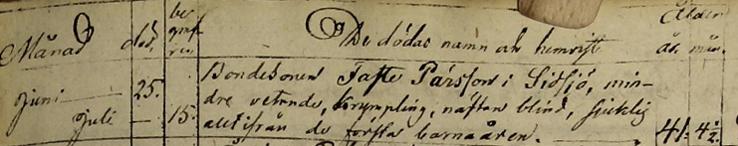 Månad död. be grafven De dödas namn och hemvist Ålder år. mån.
Juni 25. Bondesonen Tafte Pärsson i Sidsjö, min-
Juli — 15. dre vetande, krympling, nästan blind, sjuklig
alltifrån de första barnaåren. — 41. 4½.